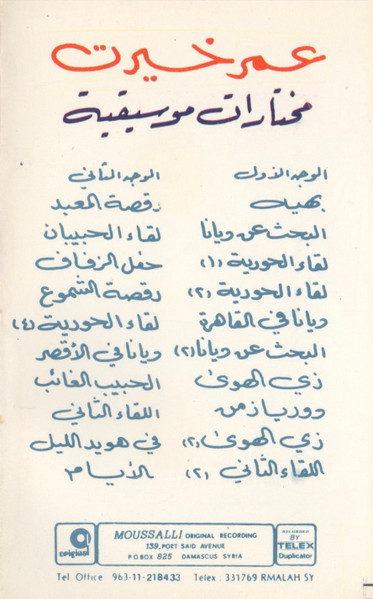 عمر خيرت
مختارات موسيقية
الوجه الأول
بهيه
البحث عن ديانا
لقاء الحورية (١)
لقاء الحورية (٢)
ديانا في القاهرة
البحث عن ديانا (٢)
زي الهوى
دور يا زمن
زي الهوى (٢)
اللقاء الثاني (٢)
الوجه الثاني
رقصة العبد
لقاء الحبيبان
حفل الزفاف
رقصة الشموع
لقاء الحورية (٤)
ديانا في الأقصر
الحبيب الغائب
اللقاء الثاني
في هويد الليل
الأيام
original
MOUSSALLI ORIGINAL RECORDING
139, PORT SAID AVENUE
P O BOX 825 DAMASCUS SYRIA
RECORDED
BY
TELEX
Duplicator
Tel Office 963-11-218433 Telex: 331769 RMALAH SY